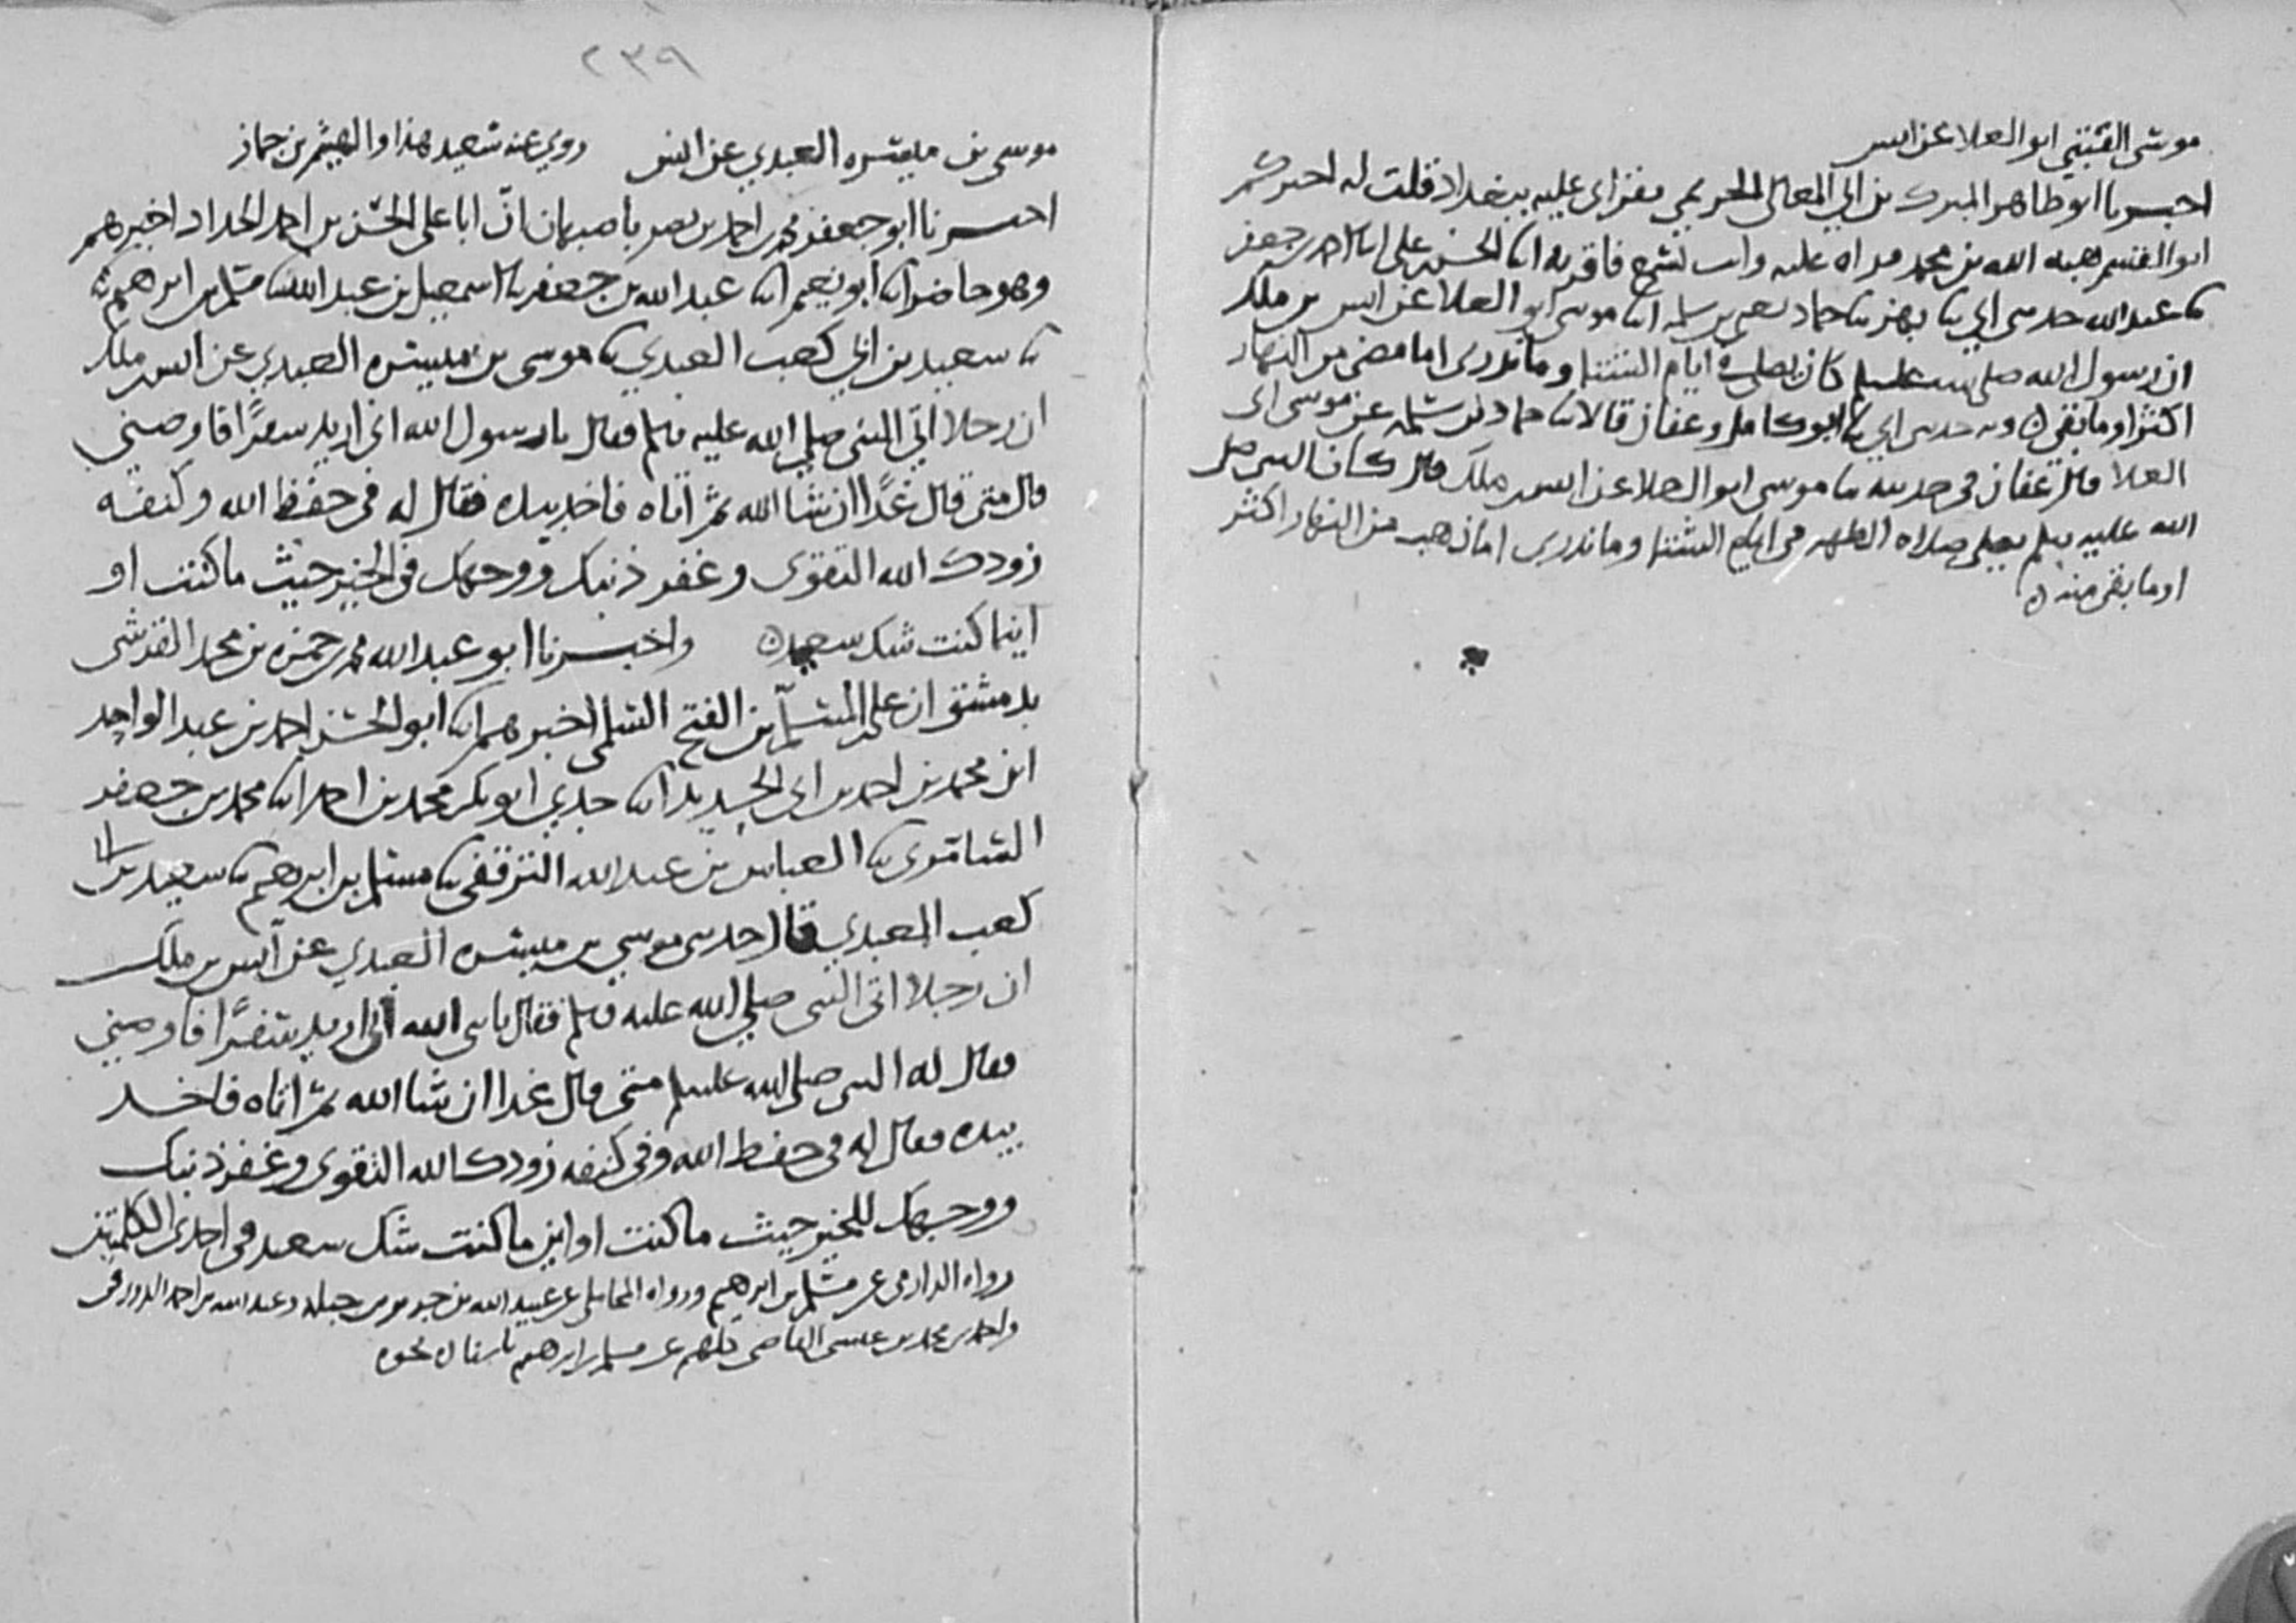 موسى القتبي ابو العلا عن انس
اخبرنا ابو طاهر المبرك بن ابي المعالي الحريمي بقراتي عليه ببغداد قلت له اخبركم
ابو القسم هبه الله بن محمد قراه عليه وانت تسمع فاقر به انا الحسن بن علي انا احمد بن جعفر
ثنا عبد الله حدثني ابي ثنا بهز ثنا حماد يعني بن سلمه انا موسى ابو العلا عن انس بن ملك
ان رسول الله صلى الله عليه وسلم كان يصلي ايام الشتا وما ندري اما مضى من النهار
اكثر او ما بقي ه وبه حدثني ابي ثنا ابو كامل وعفان قالا ثنا حماد بن سلمه عن موسى ابي
العلا قال عفان في حديثه ثنا موسى ابو العلا عن انس بن ملك قال كان النبي صلى
الله عليه وسلم يصلي صلاه الظهر في ايام الشتا وما ندري اما ذهب من النهار اكثر
او ما بقي منه ه
٢٣٩
موسى بن ميسره العبدي عن انس روى عنه سعيد هذا والهيثم بن حماز
اخبرنا ابو جعفر محمد بن احمد بن نصر باصبهان ان ابا علي الحسن بن احمد الحداد اخبرهم
وهو حاضر انا ابو نعيم انا عبد الله بن جعفر ثنا اسمعيل بن عبد الله ثنا مسلم بن ابرهيم ثنا
ثنا سعيد بن ابي كعب العبدي ثنا موسى بن ميسره العبدي عن انس بن ملك
ان رجلا اتى النبي صلى الله عليه وسلم فقال يا رسول الله اني اريد سفرًا فاوصني
قال متى قال غدًا ان شا الله ثم اتاه فاخذ بيده فقال له في حفظ الله وكنفه
زودك الله التقوى وغفر ذنبك ووجهك في الخير حيث ما كنت او
اينما كنت شك سعيد ه واخبرنا ابو عبد الله محمد بن حمزه بن محمد القرشي
بدمشق ان علي بن المسلم بن الفتح السلمي اخبرهم انا ابو الحسن احمد بن عبد الواحد
ابن محمد بن احمد بن ابي الحديد انا جدي ابو بكر محمد بن احمد انا محمد بن جعفر
السامري ثنا العباس بن عبد الله الترقفي ثنا مسلم بن ابرهيم ثنا سعيد بن ابي
كعب العبدي قال حدثني موسى بن ميسره العبدي عن انس بن ملك
ان رجلا اتى النبي صلى الله عليه وسلم فقال يا نبي الله اني اريد سفرًا فاوصني
فقال له النبي صلى الله عليه وسلم متى قال غدا ان شا الله ثم اتاه فاخذ
بيده فقال له في حفظ الله وفي كنفه زودك الله التقوى وغفر ذنبك
ووجهك للخير حيث ما كنت او اين ما كنت شك سعيد في احدى الكلمتين
رواه الدارمي عن مسلم بن ابرهيم ورواه المحاملي عن عبيد الله بن جرير بن جبله وعبد الله بن احمد الدورقي
واحمد بن محمد بن عيسى القاضي كلهم عن مسلم بن ابرهيم باسناده نحوه